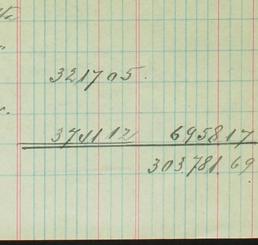 321705.
374112 695817
303.781.69